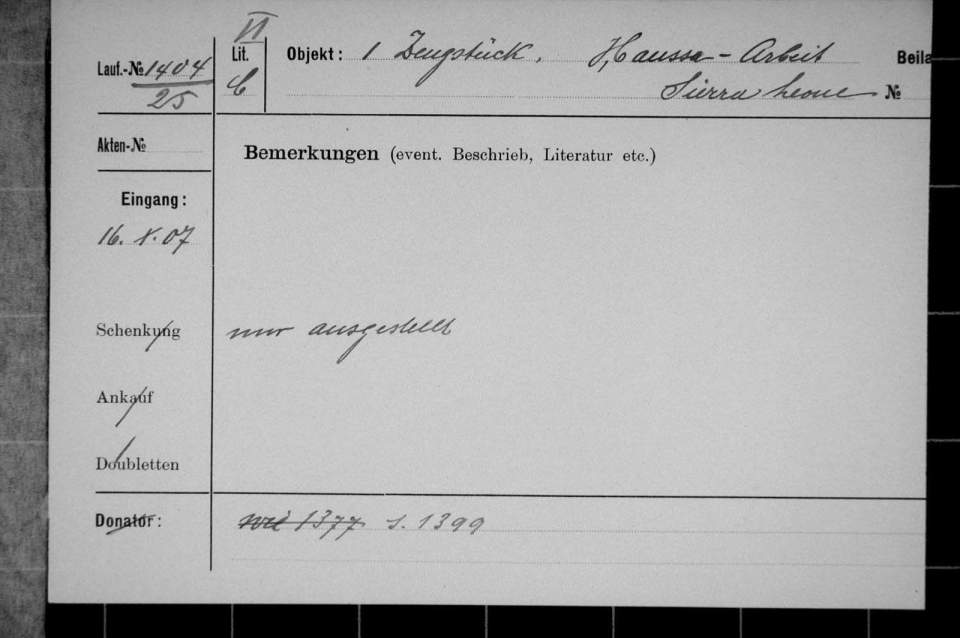 VI
Lauf.-№ 1404
25
Lit.
C
Objekt: 1 Zeugstück, Haussa-Arbeit
Sierra Leone
Beila
№
Akten-№
Bemerkungen (event. Beschrieb, Literatur etc.)
Eingang:
16. X. 07
Schenkung nur ausgestellt
Ankauf
Doubletten
Donator: wie 1377 s. 1399